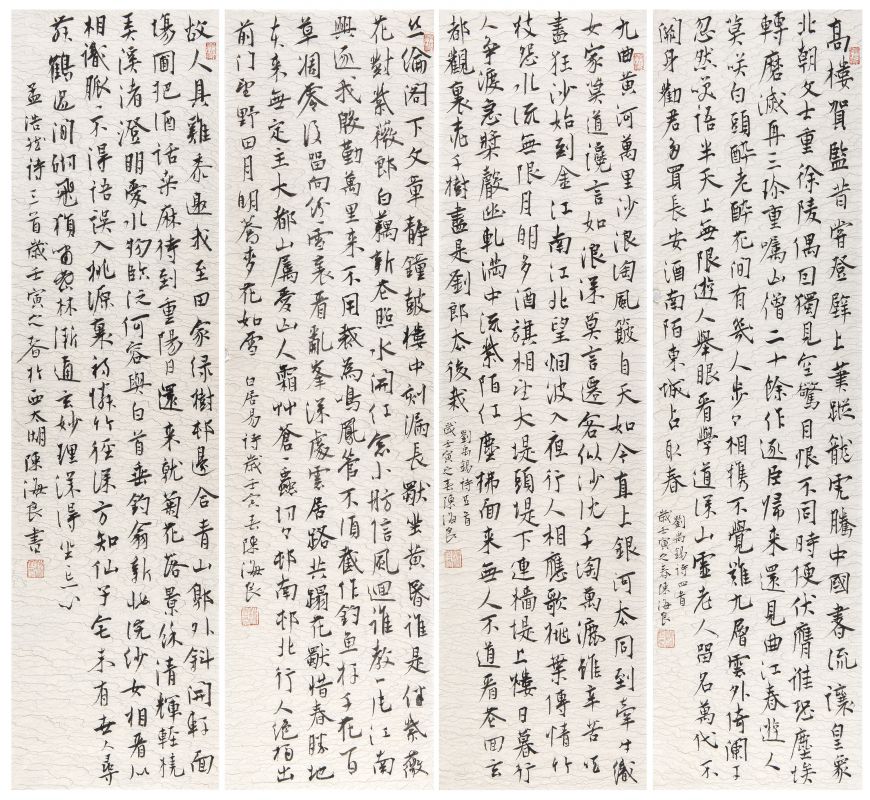 高樓賀監昔嘗登壁上筆蹤龍虎騰中國書流讓皇象
北朝文士重徐陵偶因獨見空驚目恨不同時便伏膺唯恐塵埃
轉磨滅再三珍重囑山僧二十餘作逐臣歸來還見曲江春遊人
莫笑白頭醉老醉花間有幾人步々相攜不覺難九層雲外倚闌干
忽然笑語半天上無限遊人舉眼看學道深山虛老人留名萬代不
關身勸君多買長安酒南陌東城占取春
劉禹錫詩四首
歲壬寅之春陳海良
九曲黃河萬里沙浪淘風簸自天如今直上銀河去同到牽牛織
女家莫道讒言如浪深莫言遷客似沙沈千淘萬漉雖辛苦吹
盡狂沙始到金江南江北望烟波入夜行人相應歌桃葉傳情竹
枝怨水流無限月明多酒旗相望大堤頭堤下連檣堤上樓日暮行
人爭渡急槳聲幽軋滿中流紫陌紅塵拂面來無人不道看花回玄
都觀裏桃千樹盡是劉郎去後栽
劉禹錫詩五首
歲壬寅之春陳海良
丝綸閣下文章靜鐘鼓樓中刻漏長獨坐黃昏誰是伴紫薇
花對紫薇郎白藕新花照水開紅窗小舫信風迴誰教一片江南
興逐我殷勤萬里來不用裁為鳴鳳管不須截作釣魚竿千花百
草凋零後留向紛々雪裏看亂峯深處雲居路共蹋花獨惜春勝地
本來無定主大都山屬愛山人霜艸蒼々蟲切々村南村北行人絕獨出
前門望野田月明蕎麥花如雪
白居易詩歲壬寅春陳海良
故人具雞黍邀我至田家綠樹邨邊合青山郭外斜開軒面
場圃把酒話桑麻待到重陽日還來就菊花落景餘清輝輕橈
弄溪渚澄明愛水物臨泛何容與白首垂釣翁新妝浣紗女相看似
相識脈々不得語誤入桃源裏初憐竹徑深方知仙子宅未有世人尋
舞鶴過閒砌飛猿嘯密林漸通玄妙理深得坐忘心
孟浩然詩三首歲壬寅之春於西太湖陳海良書